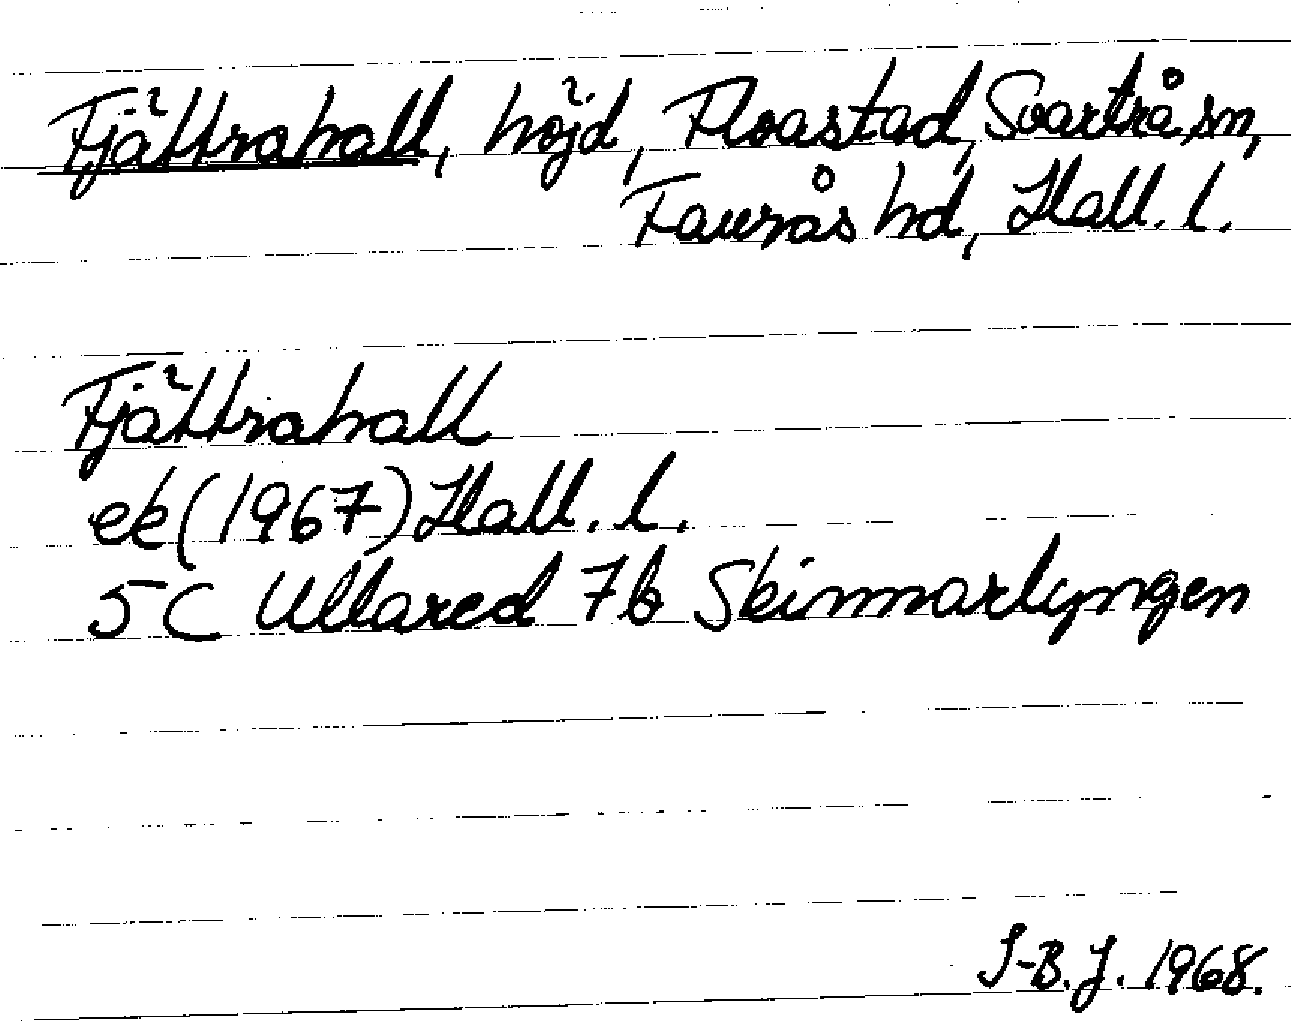 Fjättrahall, höjd, Floastad, Svartrå sn,
Faurås hd, Hall. l.
Fjättrahall
ek (1967) Hall. l.
5C Ullared 7b Skinnarlyngen
S-B.J. 1968.